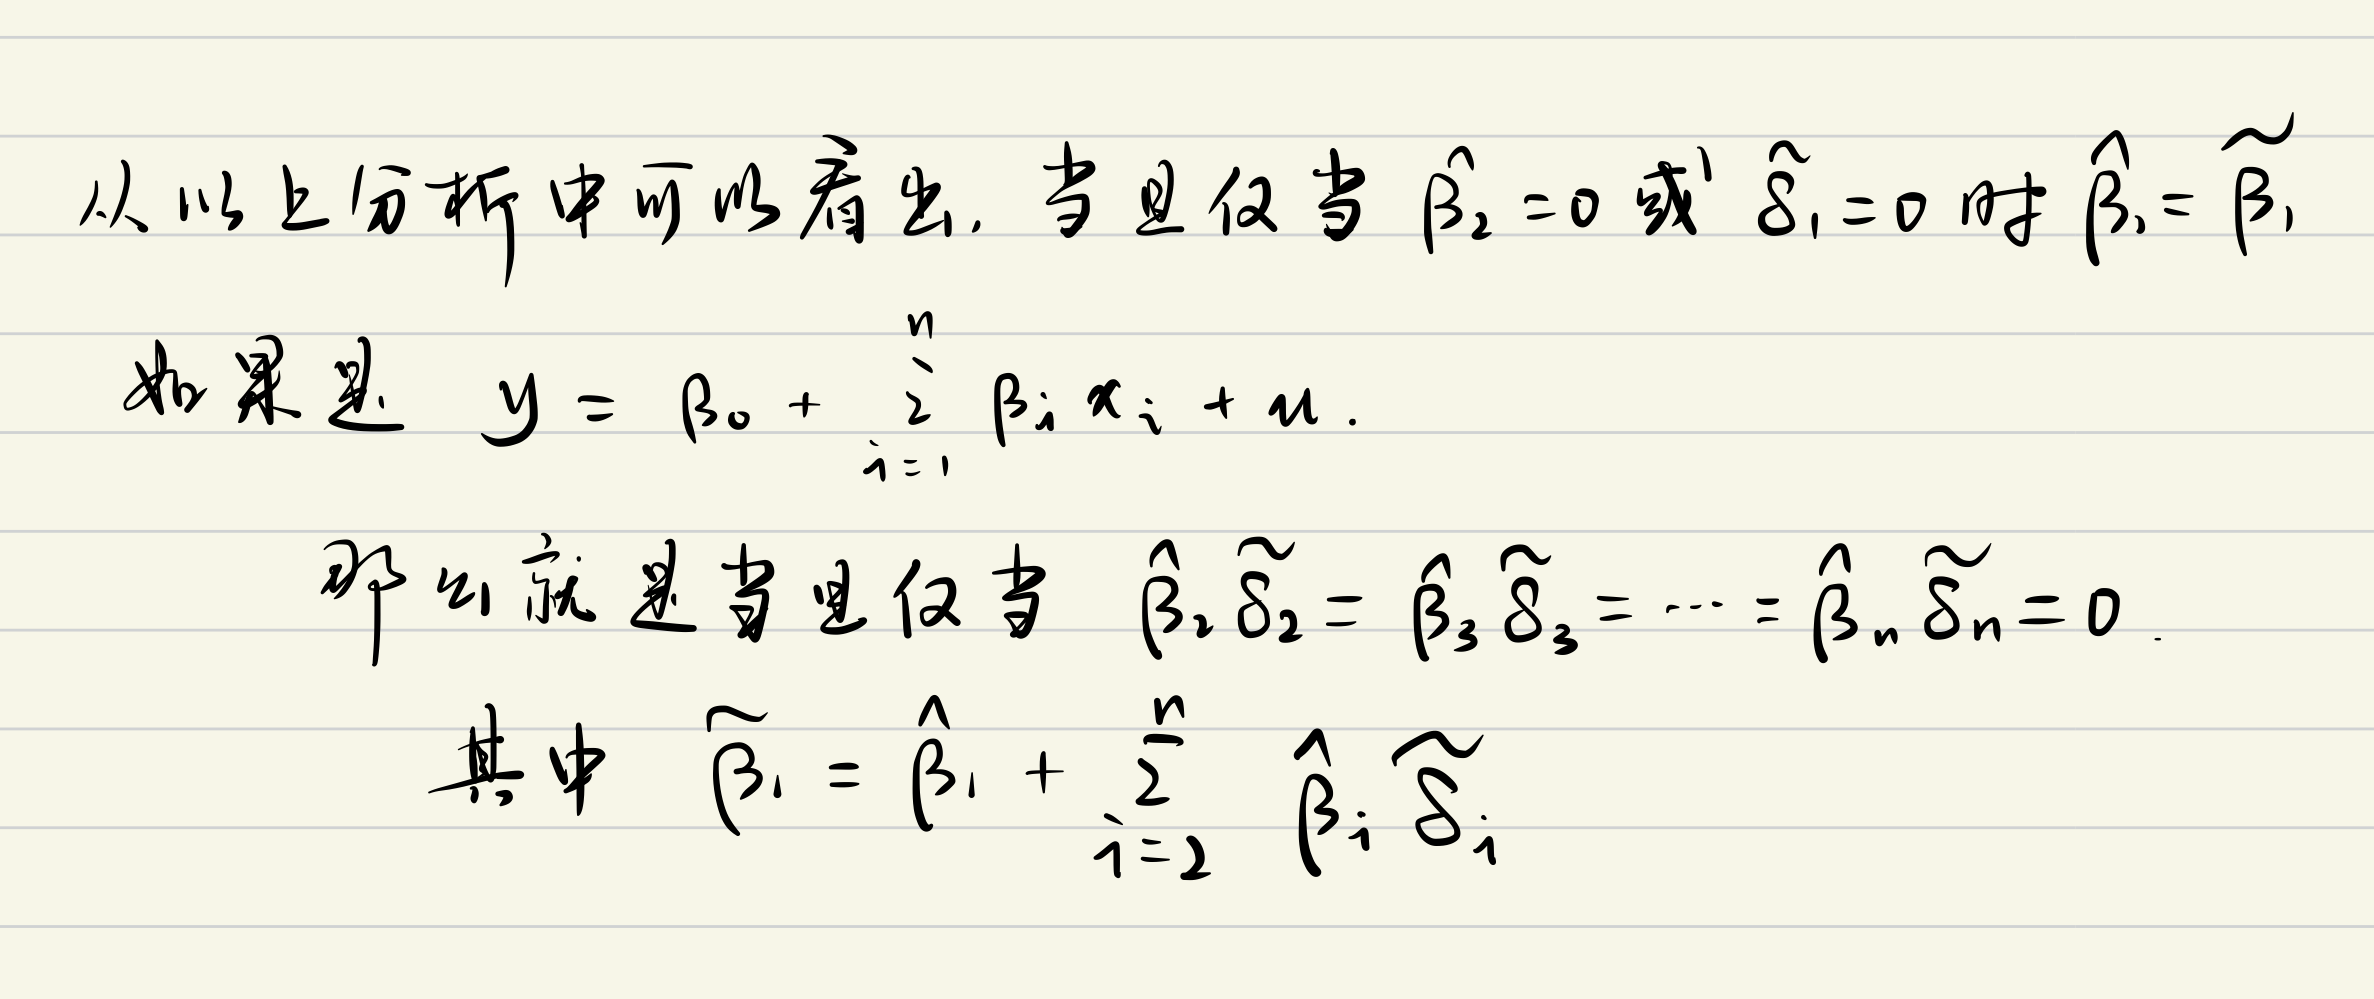 从以上分析中可以看出，当且仅当 β̂₂ = 0 或 δ̃₁ = 0 时 β̂₁ = β̃₁
如果是 y = β₀ + ∑ⁿᵢ₌₁ βᵢ xᵢ + u.
那么就是当且仅当 β̂₂ δ̃₂ = β̂₃ δ̃₃ = ··· = β̂ₙ δ̃ₙ = 0.
其中 β̃₁ = β̂₁ + ∑ⁿᵢ₌₂ β̂ᵢ δ̃ᵢ